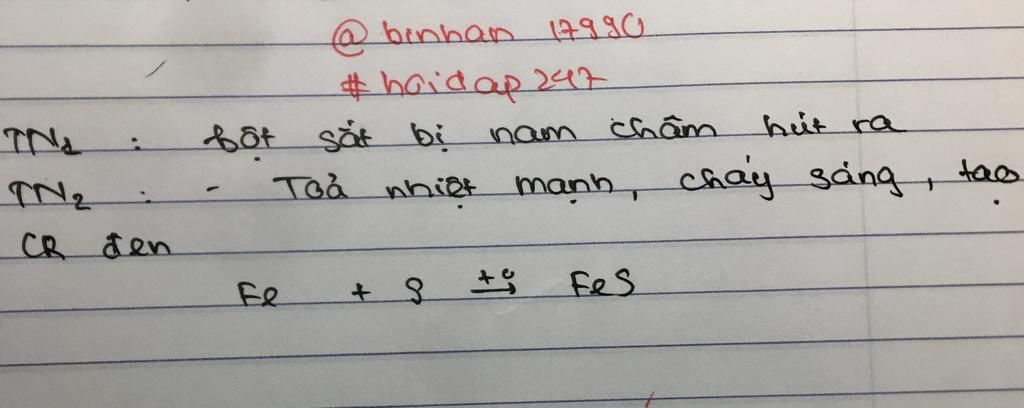 @ binhan 17990
# hoidap247
TN1 : Bột sắt bị nam châm hút ra
TN2 : - Toả nhiệt mạnh, cháy sáng, tạo
CR đen
Fe + S t° → FeS